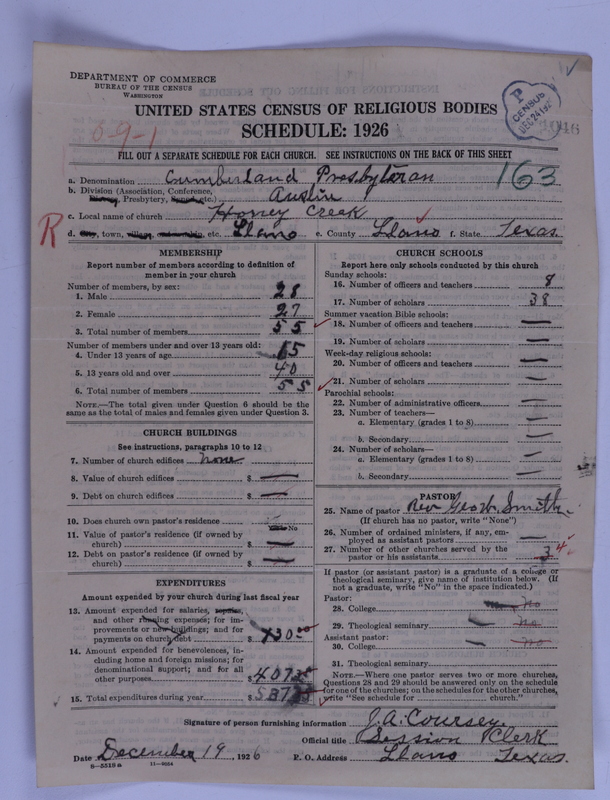 DEPARTMENT OF COMMERCE
BUREAU OF THE CENSUS
WASHINGTON
P
CENSUS
DEC 24 192
6-9-1
UNITED STATES CENSUS OF RELIGIOUS BODIES
SCHEDULE: 1926
FILL OUT A SEPARATE SCHEDULE FOR EACH CHURCH. SEE INSTRUCTIONS ON THE BACK OF THIS SHEET
163
a. Denomination Cumberland Presbyteran
b. Division (Association, Conference,
Presbytery, etc.) Austin
c. Local name of church Honey Creek
R
d. City, town, village, township, etc. Llano e. County Llano f. State Texas
MEMBERSHIP
Report number of members according to definition of
member in your church
Number of members, by sex:
1. Male 28
2. Female 27
3. Total number of members 55
Number of members under and over 13 years old:
4. Under 13 years of age 15
5. 13 years old and over 40
6. Total number of members 55
NOTE.—The total given under Question 6 should be the
same as the total of males and females given under Question 3.
CHURCH BUILDINGS
See instructions, paragraphs 10 to 12
7. Number of church edifices none
8. Value of church edifices $ —
9. Debt on church edifices $ —
10. Does church own pastor's residence No
11. Value of pastor's residence (if owned by
church) $ —
12. Debt on pastor's residence (if owned by
church) $ —
EXPENDITURES
Amount expended by your church during last fiscal year
13. Amount expended for salaries, repairs,
and other running expenses; for im-
provements or new buildings; and for
payments on church debt $
14. Amount expended for benevolences, in-
cluding home and foreign missions; for
denominational support; and for all
other purposes $
15. Total expenditures during year $
CHURCH SCHOOLS
Report here only schools conducted by this church
Sunday schools:
16. Number of officers and teachers 8
17. Number of scholars 38
Summer vacation Bible schools:
18. Number of officers and teachers —
19. Number of scholars —
Week-day religious schools:
20. Number of officers and teachers —
21. Number of scholars —
Parochial schools:
22. Number of administrative officers —
23. Number of teachers—
a. Elementary (grades 1 to 8) —
b. Secondary —
24. Number of scholars—
a. Elementary (grades 1 to 8) —
b. Secondary —
PASTOR
25. Name of pastor Rev Geo. Smith
(If church has no pastor, write "None")
26. Number of ordained ministers, if any, em-
ployed as assistant pastors —
27. Number of other churches served by the
pastor or his assistants 3 4
If pastor (or assistant pastor) is a graduate of a college or
theological seminary, give name of institution below. (If
not a graduate, write "No" in the space indicated.)
Pastor:
28. College No
29. Theological seminary — No
Assistant pastor:
30. College — No
31. Theological seminary
NOTE.—Where one pastor serves two or more churches,
Questions 28 and 29 should be answered only on the schedule
for one of the churches; on the schedules for the other churches,
write "See schedule for church."
Signature of person furnishing information J. A. Coursey
Official title Session Clerk
Date December 19, 1926 P. O. Address Llano Texas
8—5518a 11—9034